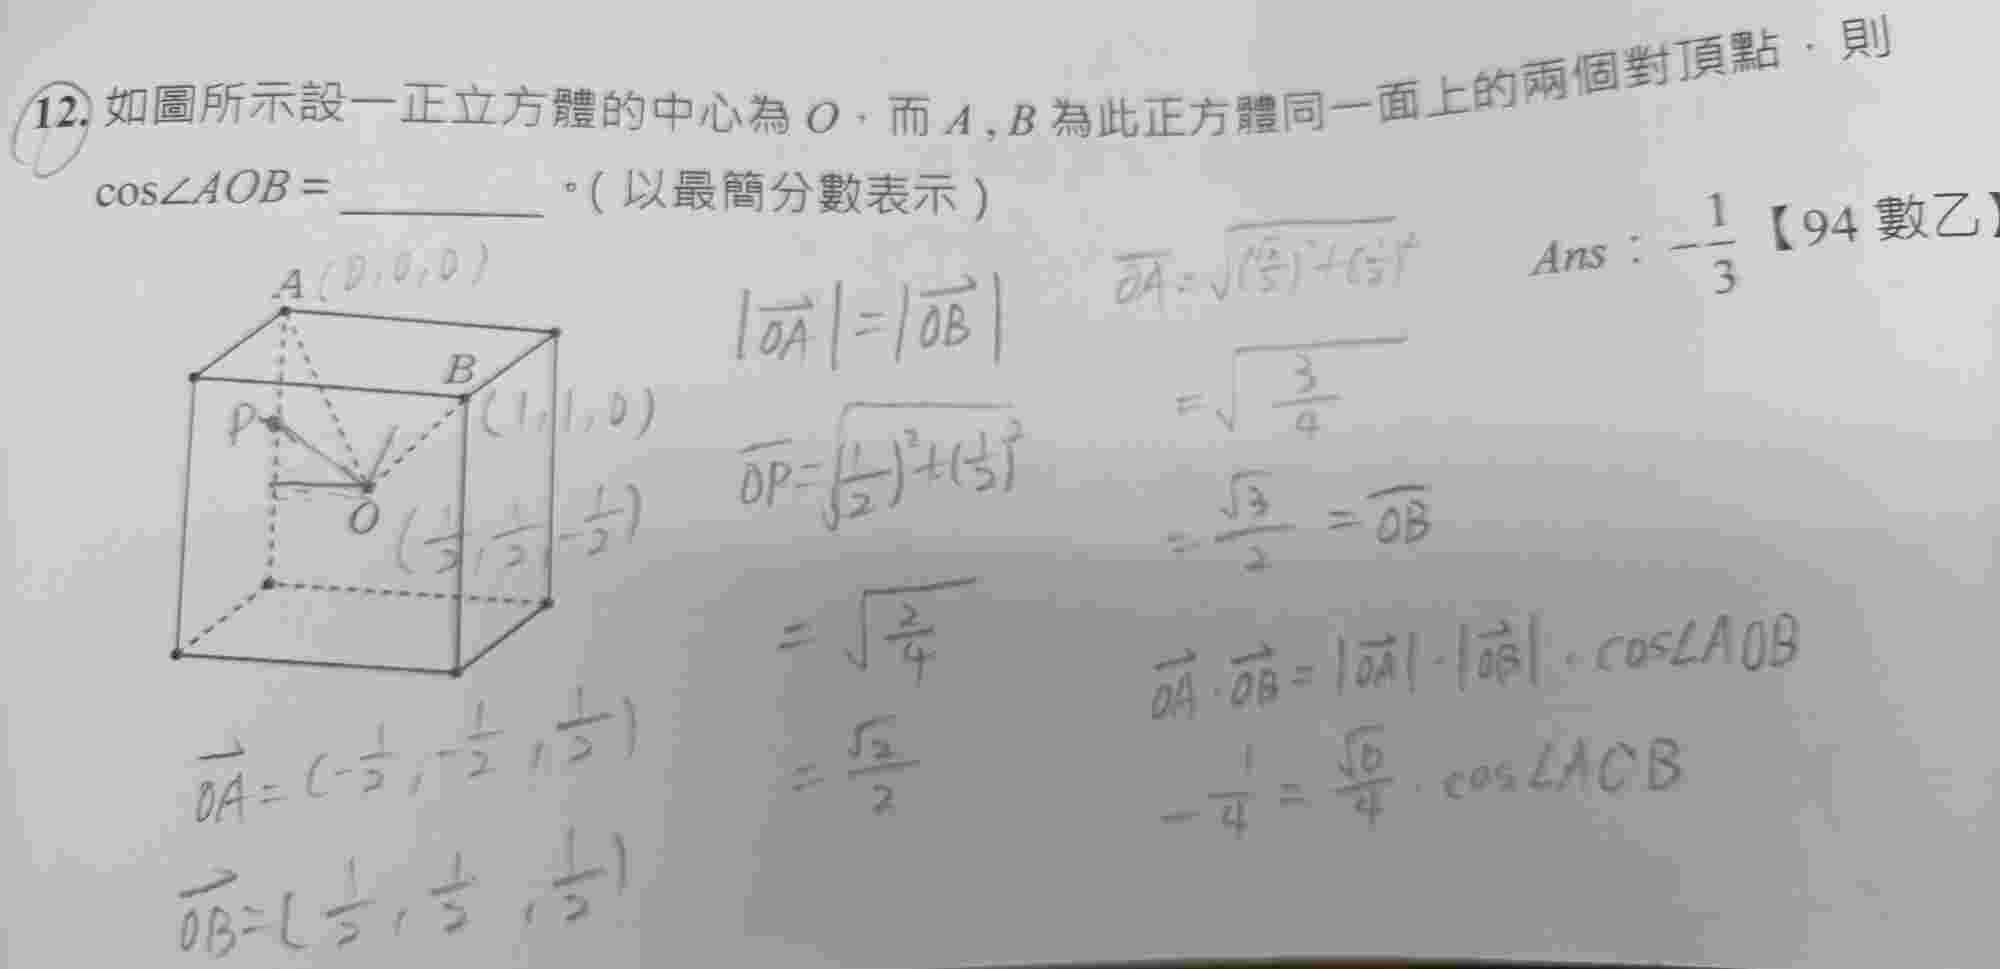 12. 如圖所示設一正立方體的中心為 O，而 A , B 為此正方體同一面上的兩個對頂點，則
cos∠AOB = ________ 。( 以最簡分數表示 )
Ans：-1/3【94 數乙】
A (0,0,0)
B
(1,1,0)
P
O
(1/2, 1/2, -1/2)
OA⃗ = (-1/2, -1/2, 1/2)
OB⃗ = (1/2, 1/2, 1/2)
|OA⃗| = |OB⃗|
OP = √((1/2)²+(1/2)²)
= √(2/4)
= √2/2
OA = √((√2/2)²+(1/2)²)
= √(3/4)
= √3/2 = OB
OA⃗ · OB⃗ = |OA⃗| · |OB⃗| · cos∠AOB
-1/4 = √6/4 · cos∠ACB